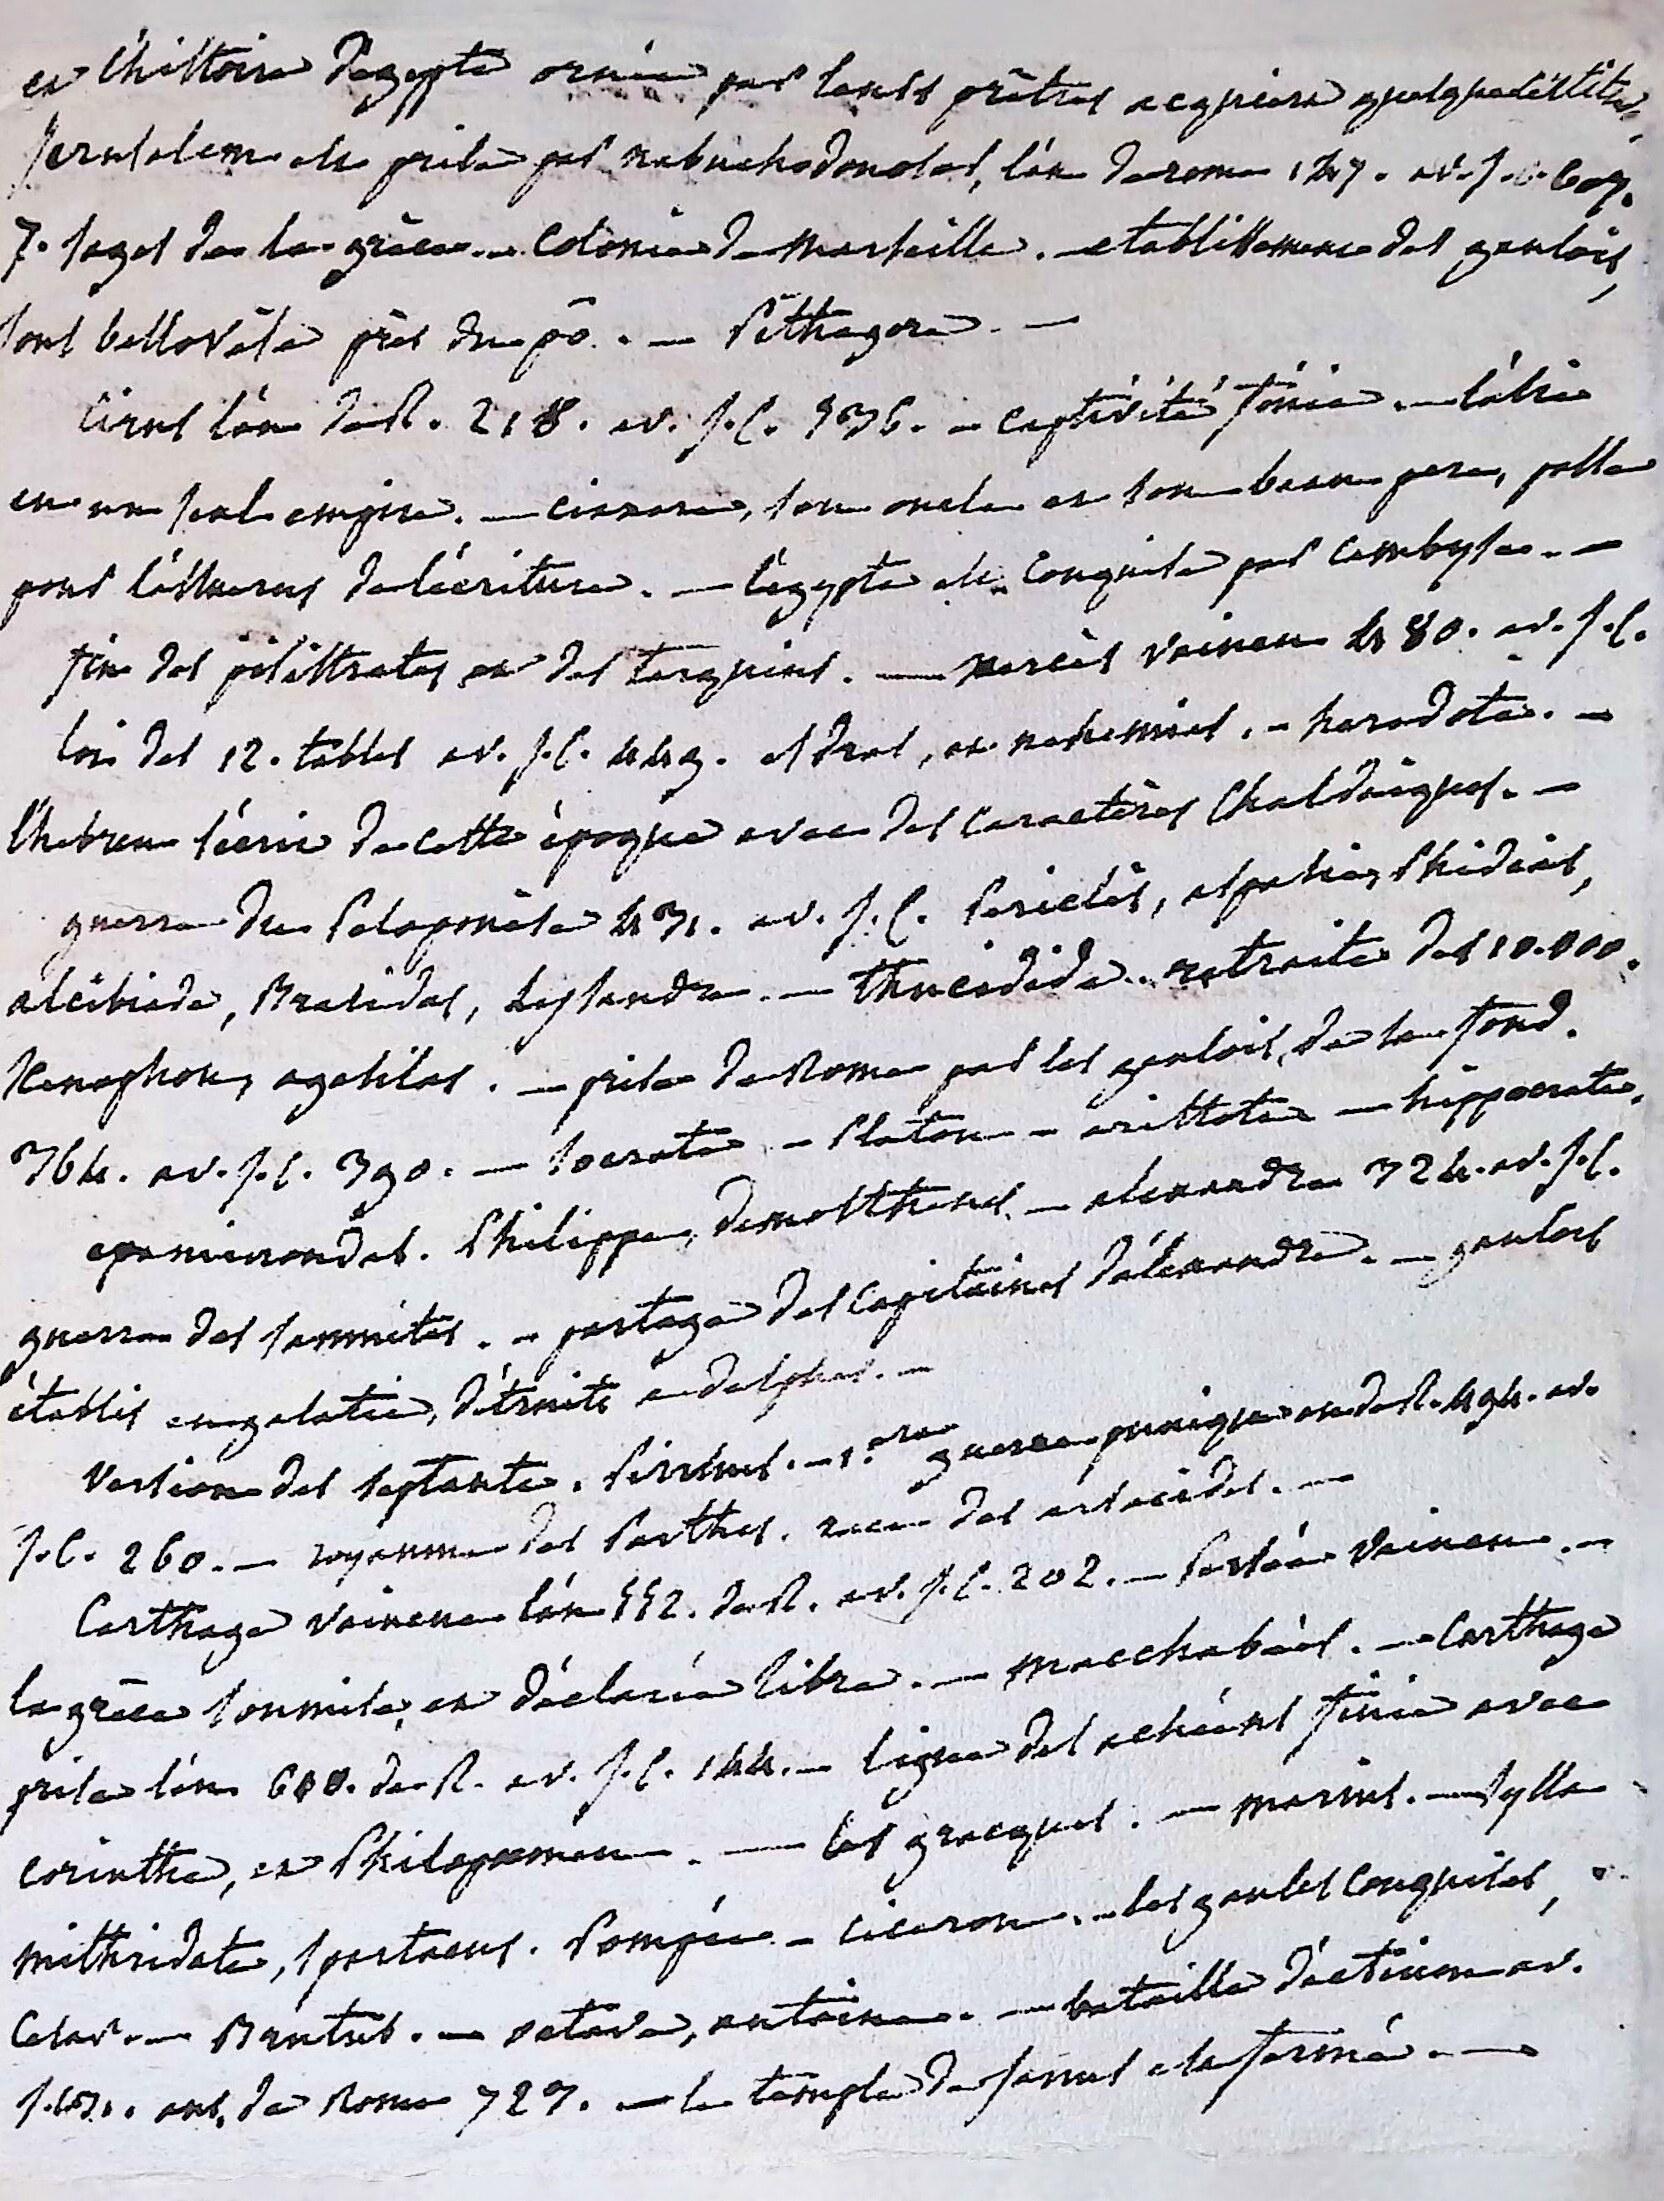 et l'histoire d'egypte ornée par leurs prêtres acquiere quelque
Jerusalem est prise par nabuchodonosor, l'an de rome 147. av. J.C. 607.
7. sages de la grèce. — Colonie de Marseille. — etablissement des gaulois,
sous bellovèse près du pô. — Pithagore. —
Cirus l'an de R. 218. av. J.C. 536. — captivité finie. — l'asie
en un seul empire. — ciaxare, son oncle et son beau pere, passe
pour l'assuerus de l'écriture. — l'égypte est conquise par Cambyse. —
fin des pisistrates et des tarquins. — xercès vaincu 480. av. J.C.
loi des 12. tables av. J.C. 449. esdras, et nehemias. — herodote. —
l'hebreu s'écrit de cette époque avec des caractères Chaldaiques. —
guerre du Peloponèse 431. av. J.C. Periclès, aspasie, Phidias,
alcibiade, Brasidas, Lysandre. — thucidide. retraite des 10.000.
Xenophon, agesilas. — prise de Rome par les gaulois, de sa fond.
364. av. J.C. 390. — socrate — Platon — aristote — hippocrate,
epaminondas. Philippe, demosthenes. — alexandre 324. av. J.C.
guerre des samnites. — partage des capitaines d'alexandre. — gaulois
établis en galatie, détruits a delphes. —
Version des septante. Pirrhus. — 1.ere guerre punique an de R. 494. av.
J.C. 260. — royaume des Parthes. race des arsacides. —
Carthage vaincue l'an 552. de R. av. J.C. 202. — Persée vaincu. —
la grèce soumise, et déclarée libre. — macchabées. — Carthage
prise l'an 608. de R. av. J.C. 144. — ligue des achéens finie avec
corinthe, et Philopoemen. — les gracques. — marius. — sylla
mithridate, spartacus. Pompée — ciceron. — les gaules conquises,
Cesar. — Brutus. — octave, antoine. — bataille d'actium av.
J.C. 31. ans, de Rome 727. — le temple de Janus est fermé. —